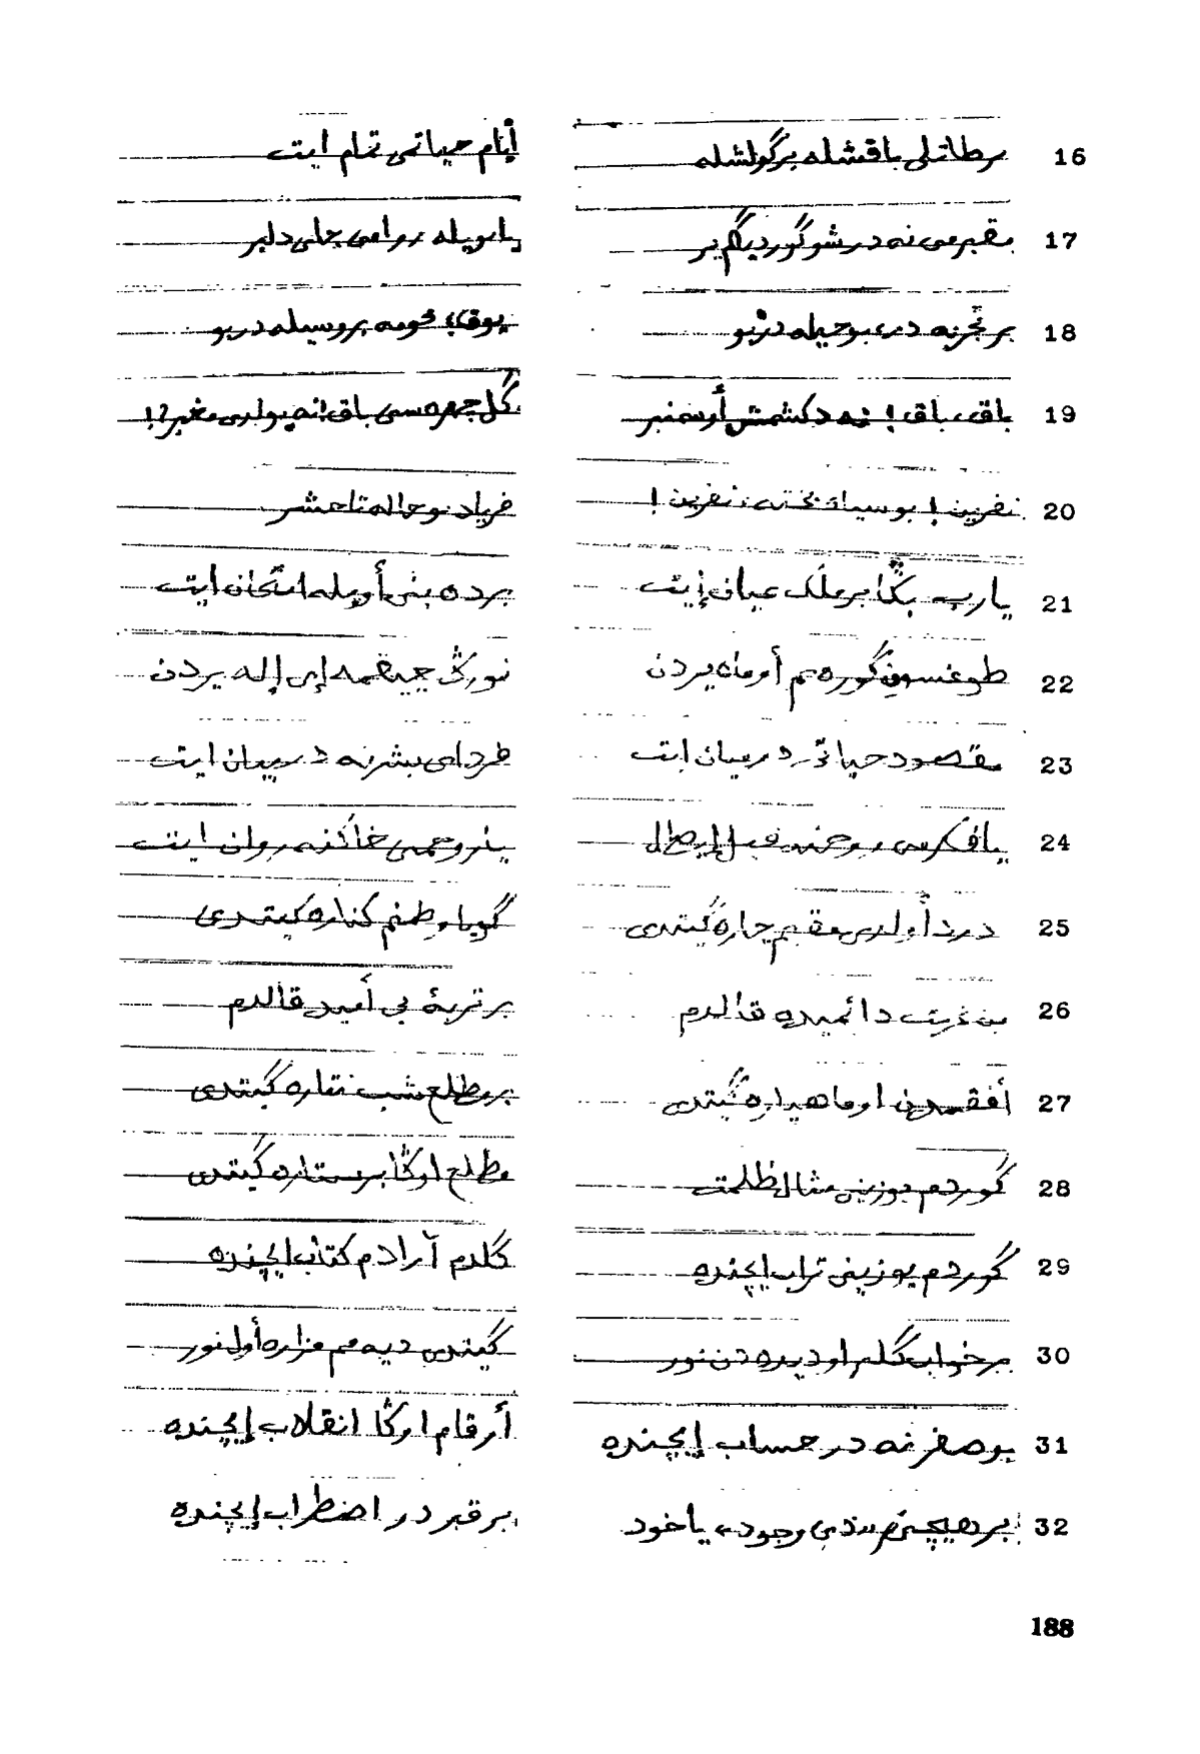 16 بر طاتلی باقشله بر گولشله أیام حیاتمی تمام ایت
17 مقبرمی نه در شو گوردیگم یر یا بویله روا می جای دلبر
18 بر تجربه در، بو حیله در بو یوق،
19 باق، باق! نه دکشمش أو سمنبر گل چهره سی باق! نه بولدی مغبر؟!
20 نفرین! بو سیاه بخته، نفرین! فریاد بو حاله تا حشر
21 یا رب بڭا بر ملك عیان ایت بر ده بنی أویله امتحان ایت
22 طوغسون گوره یم أو ماه یردن نورڭ چیقمه إی إله یردن
23 مقصود حیاتی درمیان ایت فردای بشر نه در بیان ایت
24 یا فکرمی، روحمه قیل إیصال یا روحمی خاکنه روان ایت
25 درد أولدی مقیم چاره گیتدی گویا وطنم کناره گیتدی
26 بن غربت دائمیده قالدم بر تربهٔ بی أمید قالدم
27 أفقمدن او ماهپاره گیتدی بر مطلع شب نقاره گیتدی
28 گوردم یوزینی مثال ظلمت مطلع اوڭا بر ستاره گیتدی
29 گوردم یوزینی تراب ایچنده گلدم آرادم کتاب ایچنده
30 بر خواب گلیر او دیده دن نور گیتدی دیه مم مزاره أول نور
31 بو صفر نه در حساب إیچنده أرقام اوڭا انقلاب إیچنده
32 بر هیچی وجود، یاخود بر قبر در اضطراب إیچنده
188